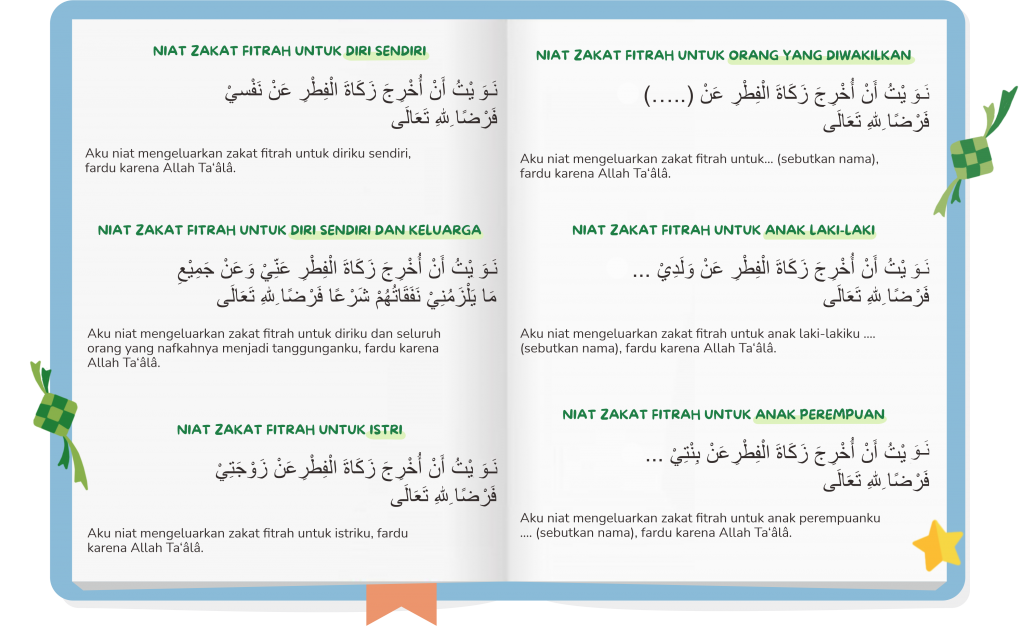 NIAT ZAKAT FITRAH UNTUK DIRI SENDIRI
نَوَيْتُ أَنْ أُخْرِجَ زَكَاةَ الْفِطْرِ عَنْ نَفْسيْ
فَرْضًا ِللهِ تَعَالَى
Aku niat mengeluarkan zakat fitrah untuk diriku sendiri,
fardu karena Allah Ta‘âlâ.
NIAT ZAKAT FITRAH UNTUK DIRI SENDIRI DAN KELUARGA
نَوَيْتُ أَنْ أُخْرِجَ زَكَاةَ الْفِطْرِ عَنِّيْ وَعَنْ جَمِيْعِ
مَا يَلْزَمُنِيْ نَفَقَاتُهُمْ شَرْعًا فَرْضًا ِللهِ تَعَالَى
Aku niat mengeluarkan zakat fitrah untuk diriku dan seluruh
orang yang nafkahnya menjadi tanggunganku, fardu karena
Allah Ta‘âlâ.
NIAT ZAKAT FITRAH UNTUK ISTRI
نَوَيْتُ أَنْ أُخْرِجَ زَكَاةَ الْفِطْرِ عَنْ زَوْجَتِيْ
فَرْضًا ِللهِ تَعَالَى
Aku niat mengeluarkan zakat fitrah untuk istriku, fardu
karena Allah Ta‘âlâ.
NIAT ZAKAT FITRAH UNTUK ORANG YANG DIWAKILKAN
نَوَيْتُ أَنْ أُخْرِجَ زَكَاةَ الْفِطْرِ عَنْ (.....)
فَرْضًا ِللهِ تَعَالَى
Aku niat mengeluarkan zakat fitrah untuk... (sebutkan nama),
fardu karena Allah Ta‘âlâ.
NIAT ZAKAT FITRAH UNTUK ANAK LAKI-LAKI
نَوَيْتُ أَنْ أُخْرِجَ زَكَاةَ الْفِطْرِ عَنْ وَلَدِيْ ...
فَرْضًا ِللهِ تَعَالَى
Aku niat mengeluarkan zakat fitrah untuk anak laki-lakiku ....
(sebutkan nama), fardu karena Allah Ta‘âlâ.
NIAT ZAKAT FITRAH UNTUK ANAK PEREMPUAN
نَوَيْتُ أَنْ أُخْرِجَ زَكَاةَ الْفِطْرِ عَنْ بِنْتِيْ ...
فَرْضًا ِللهِ تَعَالَى
Aku niat mengeluarkan zakat fitrah untuk anak perempuanku
.... (sebutkan nama), fardu karena Allah Ta‘âlâ.